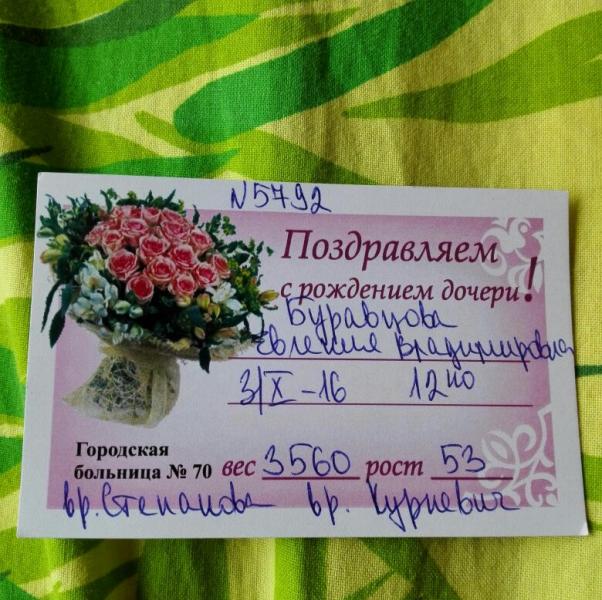 N5792
Поздравляем
с рождением дочери!
Буравцова
Евгения Владимировна
3/X-16 12 40
Городская
больница № 70 вес 3560 рост 53
вр. Степанова вр. Курневич